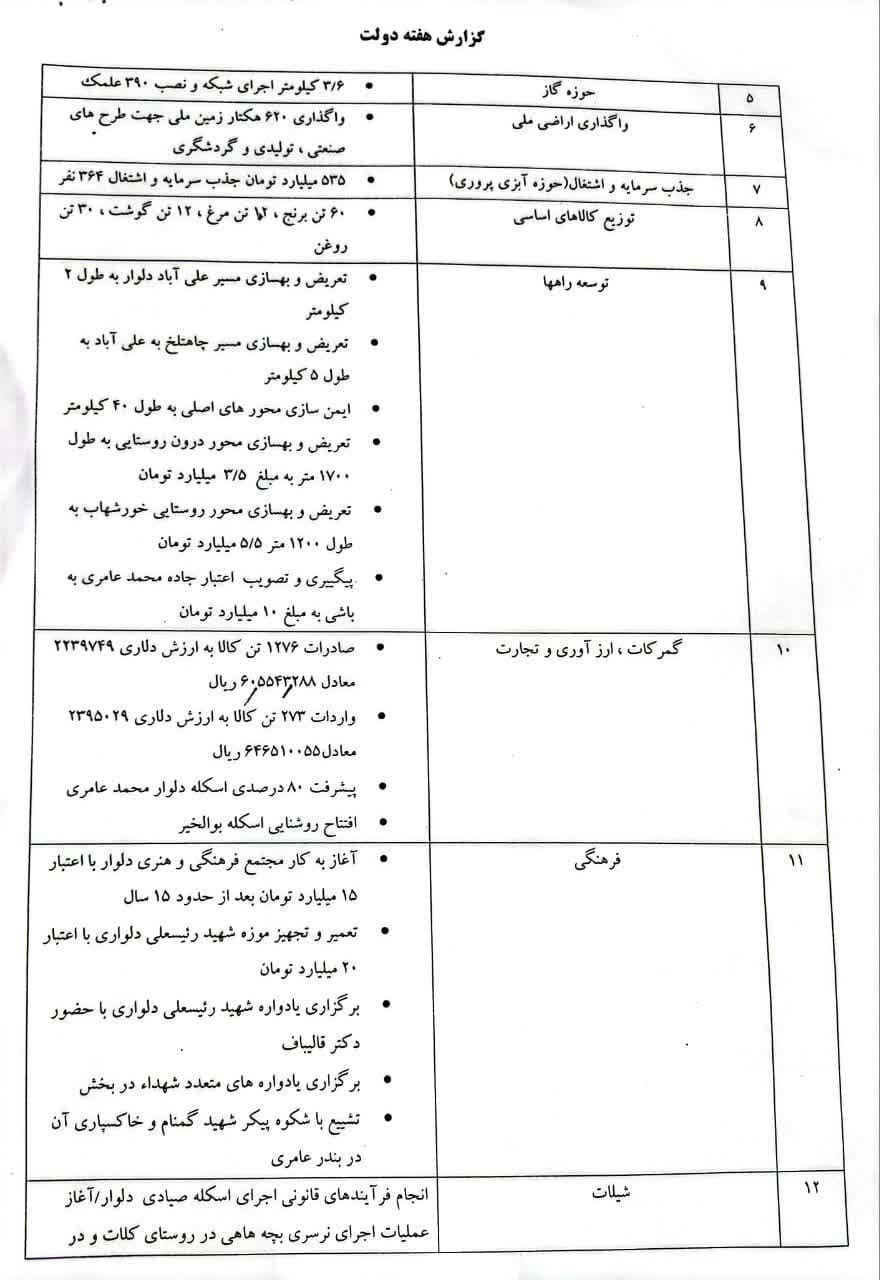 گزارش هفته دولت
۵
حوزه گاز
• ۳/۶ کیلومتر اجرای شبکه و نصب ۳۹۰ علمک
۶
واگذاری اراضی ملی
• واگذاری ۶۲۰ هکتار زمین ملی جهت طرح های
صنعتی ، تولیدی و گردشگری
۷
جذب سرمایه و اشتغال(حوزه آبزی پروری)
• ۵۳۵ میلیارد تومان جذب سرمایه و اشتغال ۳۶۴ نفر
۸
توزیع کالاهای اساسی
• ۶۰ تن برنج ، ۱۲ تن مرغ ، ۱۲ تن گوشت ، ۳۰ تن
روغن
۹
توسعه راهها
• تعریض و بهسازی مسیر علی آباد دلوار به طول ۲
کیلومتر
• تعریض و بهسازی مسیر چاهتلخ به علی آباد به
طول ۵ کیلومتر
• ایمن سازی محور های اصلی به طول ۴۰ کیلومتر
• تعریض و بهسازی محور درون روستایی به طول
۱۷۰۰ متر به مبلغ ۳/۵ میلیارد تومان
• تعریض و بهسازی محور روستایی خورشهاب به
طول ۱۲۰۰ متر ۵/۵ میلیارد تومان
• پیگییری و تصویب اعتبار جاده محمد عامری به
باشی به مبلغ ۱۰ میلیارد تومان
۱۰
گمرکات ، ارز آوری و تجارت
• صادرات ۱۲۷۶ تن کالا به ارزش دلاری ۲۲۳۹۷۴۹
معادل ۶۰۵۵۴۳۲۸۸ ریال
• واردات ۲۷۳ تن کالا به ارزش دلاری ۲۳۹۵۰۲۹
معادل۶۴۶۵۱۰۰۵۵ ریال
• پیشرفت ۸۰ درصدی اسکله دلوار محمد عامری
• افتتاح روشنایی اسکله بوالخیر
۱۱
فرهنگی
• آغاز به کار مجتمع فرهنگی و هنری دلوار با اعتبار
۱۵ میلیارد تومان بعد از حدود ۱۵ سال
• تعمیر و تجهیز موزه شهید رئیسعلی دلواری با اعتبار
۲۰ میلیارد تومان
• برگزاری یادواره شهید رئیسعلی دلواری با حضور
دکتر قالیباف
• برگزاری یادواره های متعدد شهداء در بخش
• تشییع با شکوه پیکر شهید گمنام و خاکسپاری آن
در بندر عامری
۱۲
شیلات
انجام فرآیندهای قانونی اجرای اسکله صیادی دلوار/آغاز
عملیات اجرای نرسری بچه هاهی در روستای کلات و در